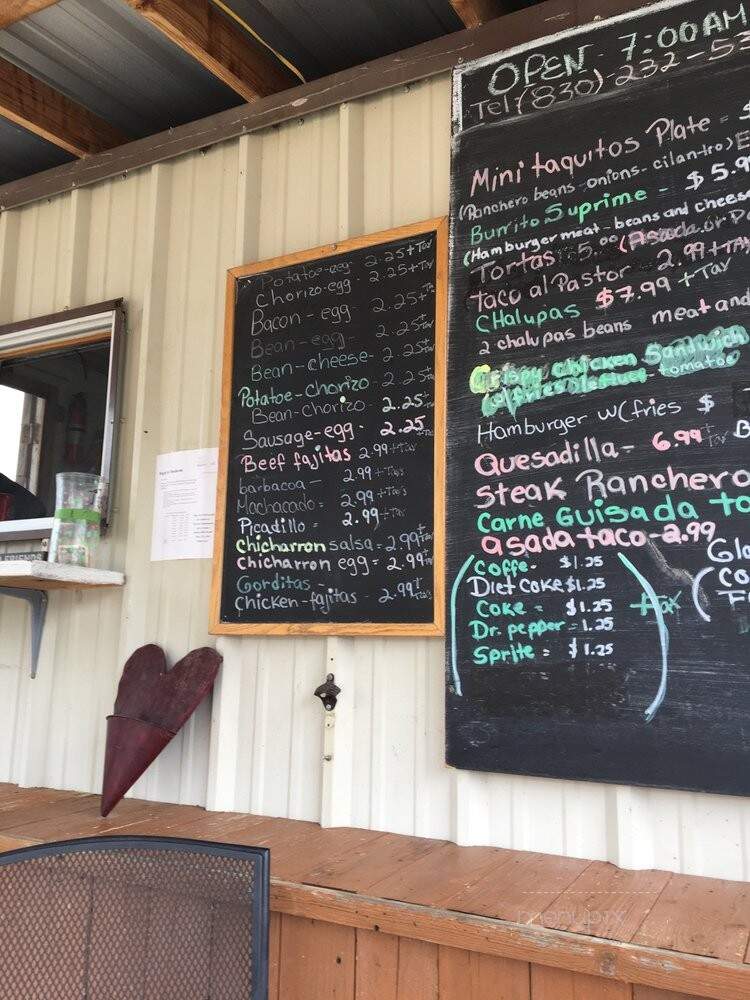 Potatoe-egg 2.25+Tax
Chorizo-egg 2.25+Tax
Bacon-egg 2.25+Tax
Bean-egg 2.25+Tax
Bean-cheese- 2.25+Tax
Potatoe-Chorizo 2.25
Bean-Chorizo 2.25+
Sausage-egg- 2.25
Beef fajitas 2.99+Tax
barbacoa - 2.99+Tax's
Machacado= 2.99+Tax's
Picadillo = 2.99+Tax
Chicharron salsa-2.99+
Chicharron egg= 2.99+
Gorditas -
Chicken-fajitas - 2.99+
OPEN 7:00AM
Tel(830)-232-53
Mini taquitos Plate =
(Ranchero beans-onions-cilan-tro)
Burrito Suprime - $5.9
(Hamburger meat-beans and cheese
Tortas 5.00 (Asada or P
Taco al Pastor 2.99+TAX
CHalupas $7.99+Tax
2 chalupas beans meat and
Crispy chicken Sandwich
tomatoe
Hamburger w(fries $
Quesadilla- 6.99+Tax
Steak Ranchero
Carne Guisada ta
asada taco-2.99
Coffe- $1.25
Diet Coke $1.25
Coke = $1.25 +tax
Dr. pepper=1.25
Sprite= $1.25
menupix